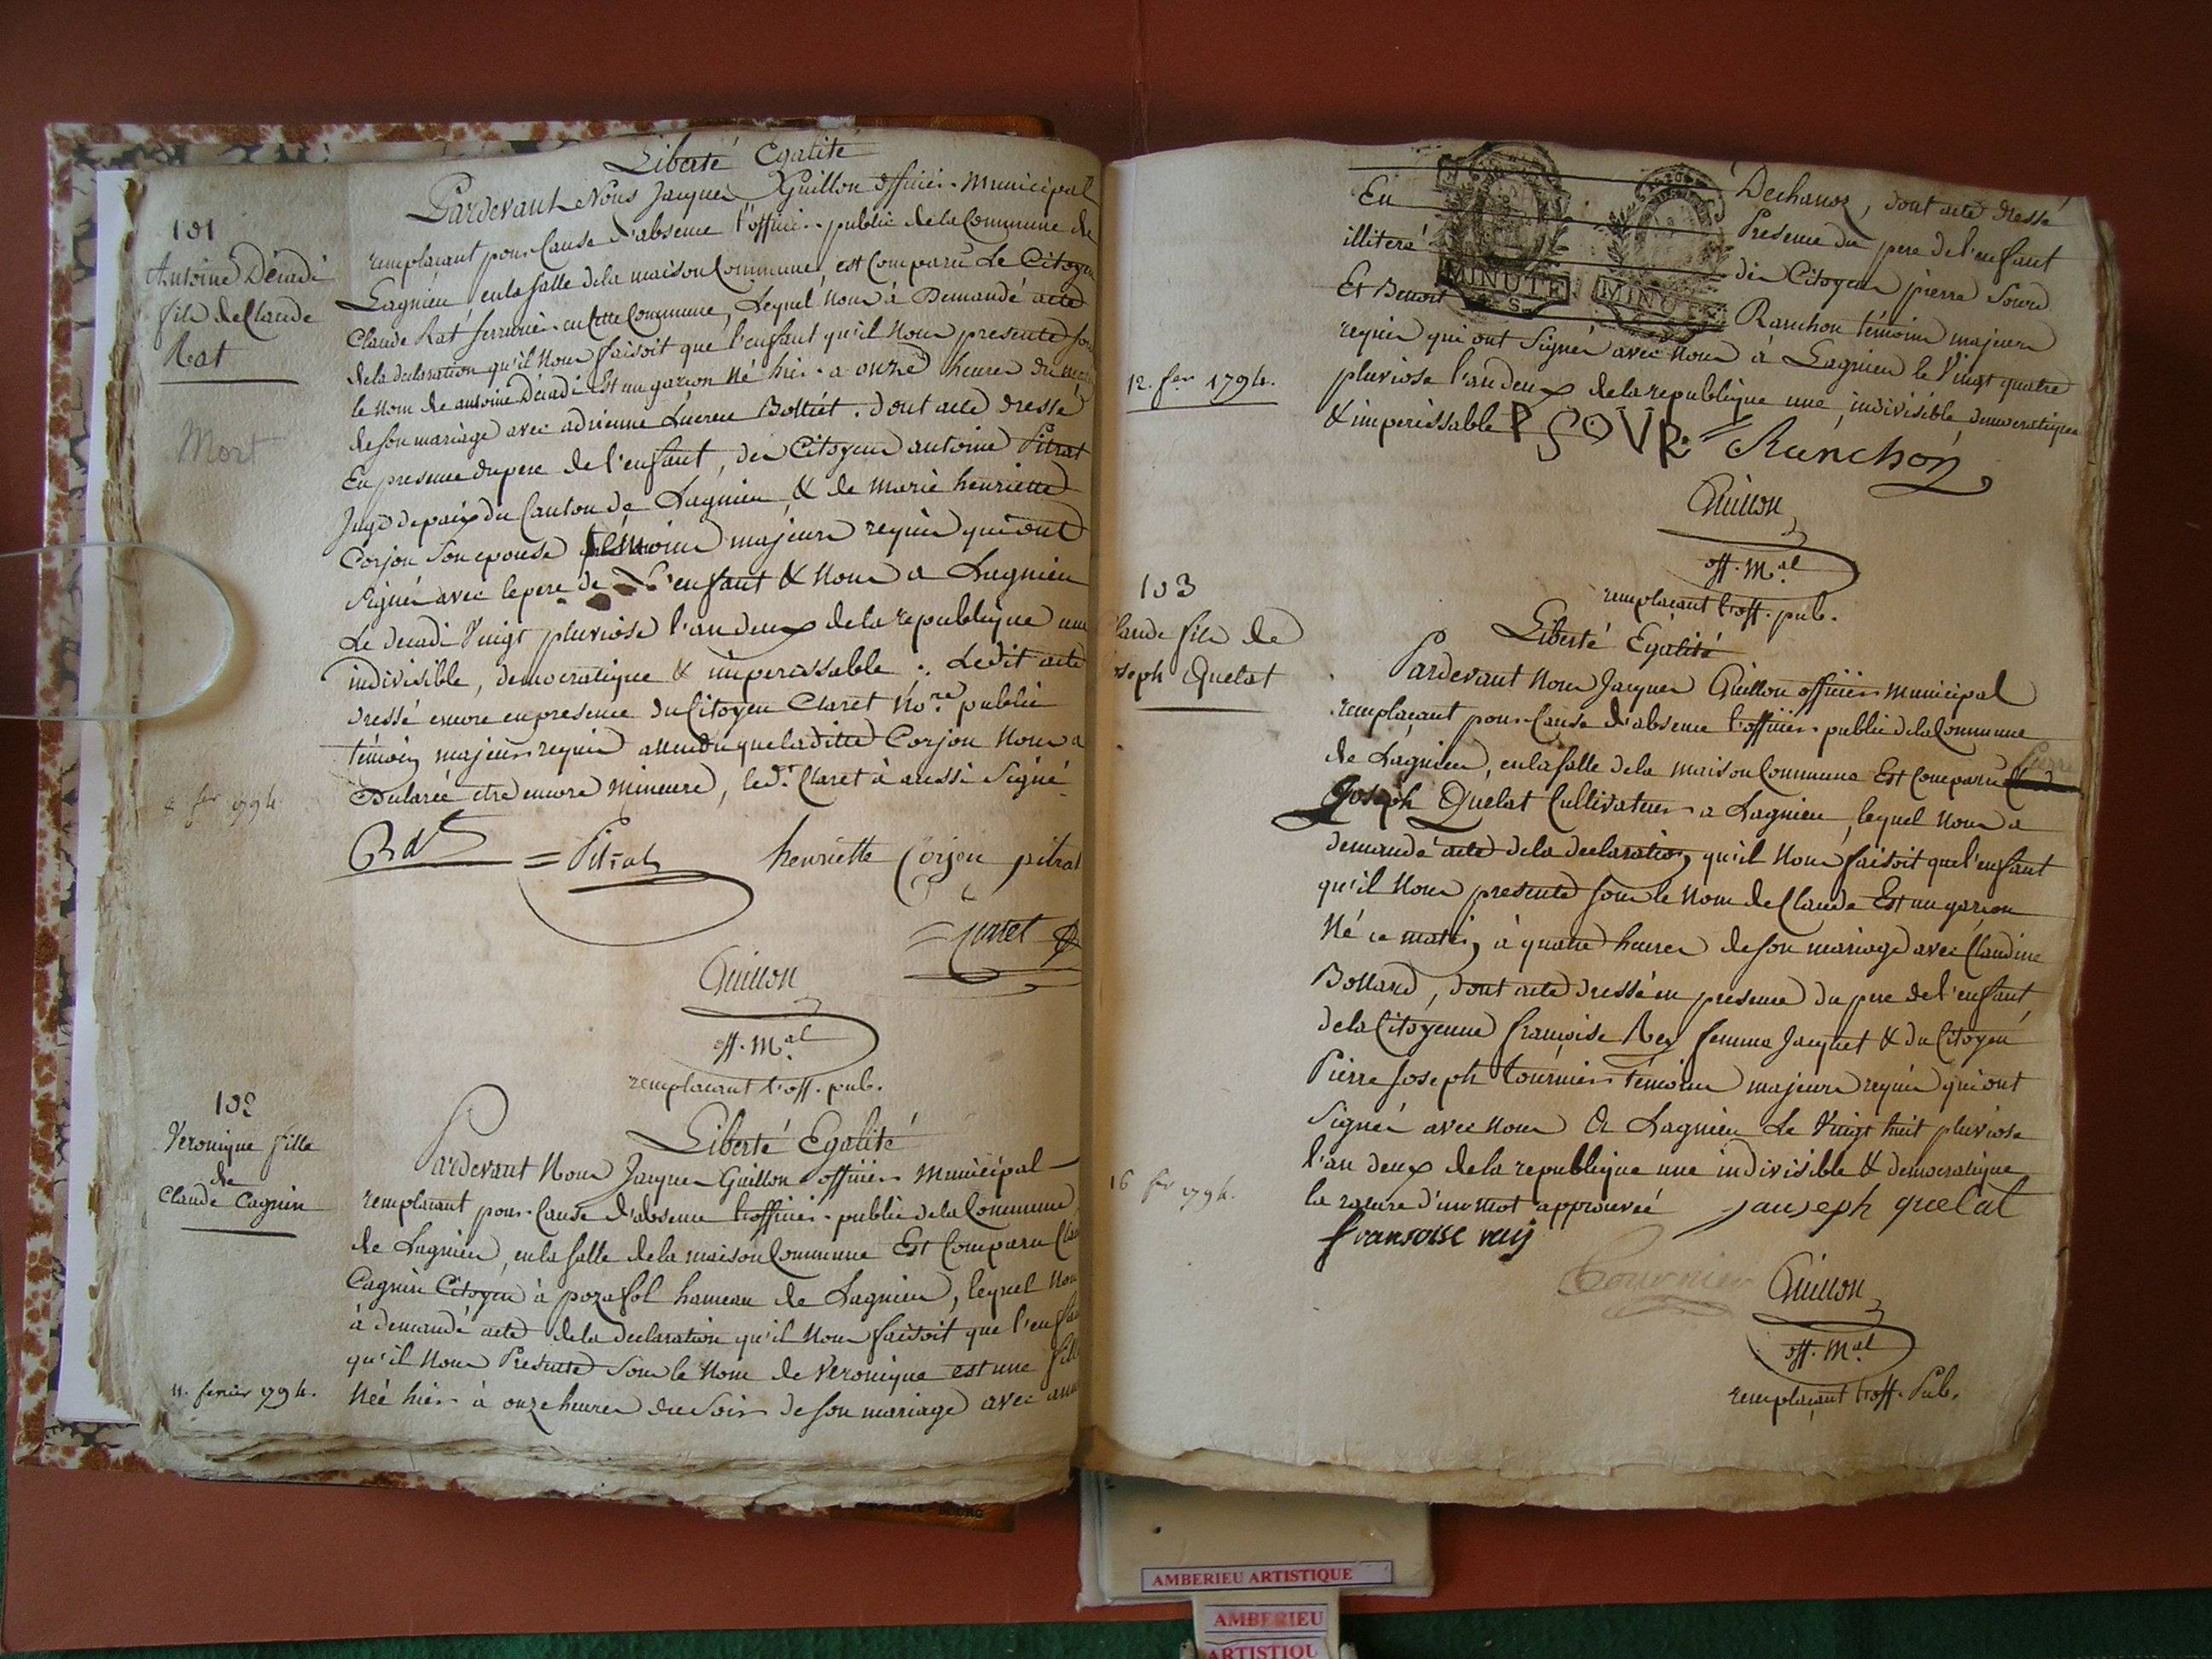 101
Antoine Décadi
fils de Claude
Rat
Mort
Liberté Egalité
Pardevant Nous Jacques Guillon officier municipal
remplacant pour Cause d'absence l'officier public de la Commune de
Lagnieu, en la salle de la maison Commune, est Comparu Le Citoyen
Claude Rat serrurier en cette Commune, Lequel nous à Demandé acte
de la declaration qu'il nous faisoit que l'enfant qu'il nous presente sous
le nom de antoine Décadi Est un garcon né hier a onze heures du matin
de son mariage avec adrienne Lucrece Bottiet. dont acte dressé
En presence du pere de l'enfant, des Citoyens antoine Pitrat
Juge de paix du Canton de Lagnieu, & de marie henriette
Corjon son epouse témoins majeurs requis qui ont
signés avec le pere de l'enfant & nous a Lagnieu
Le decadi Vingt pluviose l'an deux de la republique une
indivisible, democratique & imperissable. Ledit acte
dressé encore en presence du Citoyen Claret No.re public
témoin majeur requis attendu que ladite Corjon nous a
Declarée etre encore mineure, le d.t Claret à aussi Signé
8 fer 1794.
Rat = Pitrat henriette Corjon pitrat
= Claret
Guillon
off. M.al
remplacant l'off. pub.
102
Veronique fille
de
Claude Cagnin
Liberté Egalité
Pardevant Nous Jacques Guillon officier municipal
remplacant pour Cause d'absence l'officier public de la Commune
de Lagnieu, en la salle de la maison Commune Est Comparu
Cagnin Citoyen à pozafol hameau de Lagnieu, lequel nous
à demandé acte de la declaration qu'il nous faisoit que l'enfant
qu'il nous Presente sous le nom de Veronique est une fille
née hier à onze heures du soir de son mariage avec anne
11. fevrier 1794.
Dechanoz, dont acte dressé
En Presence du pere de l'enfant
illiteré des Citoyens pierre Sourd
Et Benoit Ranchon témoins majeurs
requis qui ont signés avec nous à Lagnieu le Vingt quatre
pluviose l'an deux de la republique une, indivisible democratique
& imperissable PSOVR Ranchon
MINUTE
MINUTE
12. fer 1794.
Guillon
off. M.al
remplacant l'off. pub.
103
laude fils de
oseph Quelat
Liberté Egalité
Pardevant Nous Jacques Guillon officier municipal
remplacant pour Cause d'absence l'officier public de la Commune
de Lagnieu, en la salle de la maison Commune Est Comparu
Joseph Quelat Cultivateur a Lagnieu, lequel nous a
demandé acte de la declaration qu'il nous faisoit que l'enfant
qu'il nous presente sous le nom de Claude Est un garcon
Né ce matin à quatre heures de son mariage avec Claudine
Bollard, dont acte dressé en presence du pere de l'enfant,
de la Citoyenne francoise Rey femme Jacquet & du Citoyen
Pierre Joseph tournier Temoins majeurs requis qui ont
signés avec nous A Lagnieu Le Vingt huit pluviose
l'an deux de la republique une indivisible & democratique
la rature d'un mot approuvée jauseph quelat
16 fer 1794.
fransoise reiy
Tournier Guillon
off. M.al
remplaçant l'off. Pub.
AMBERIEU ARTISTIQUE
AMBERIEU
ARTISTIQU